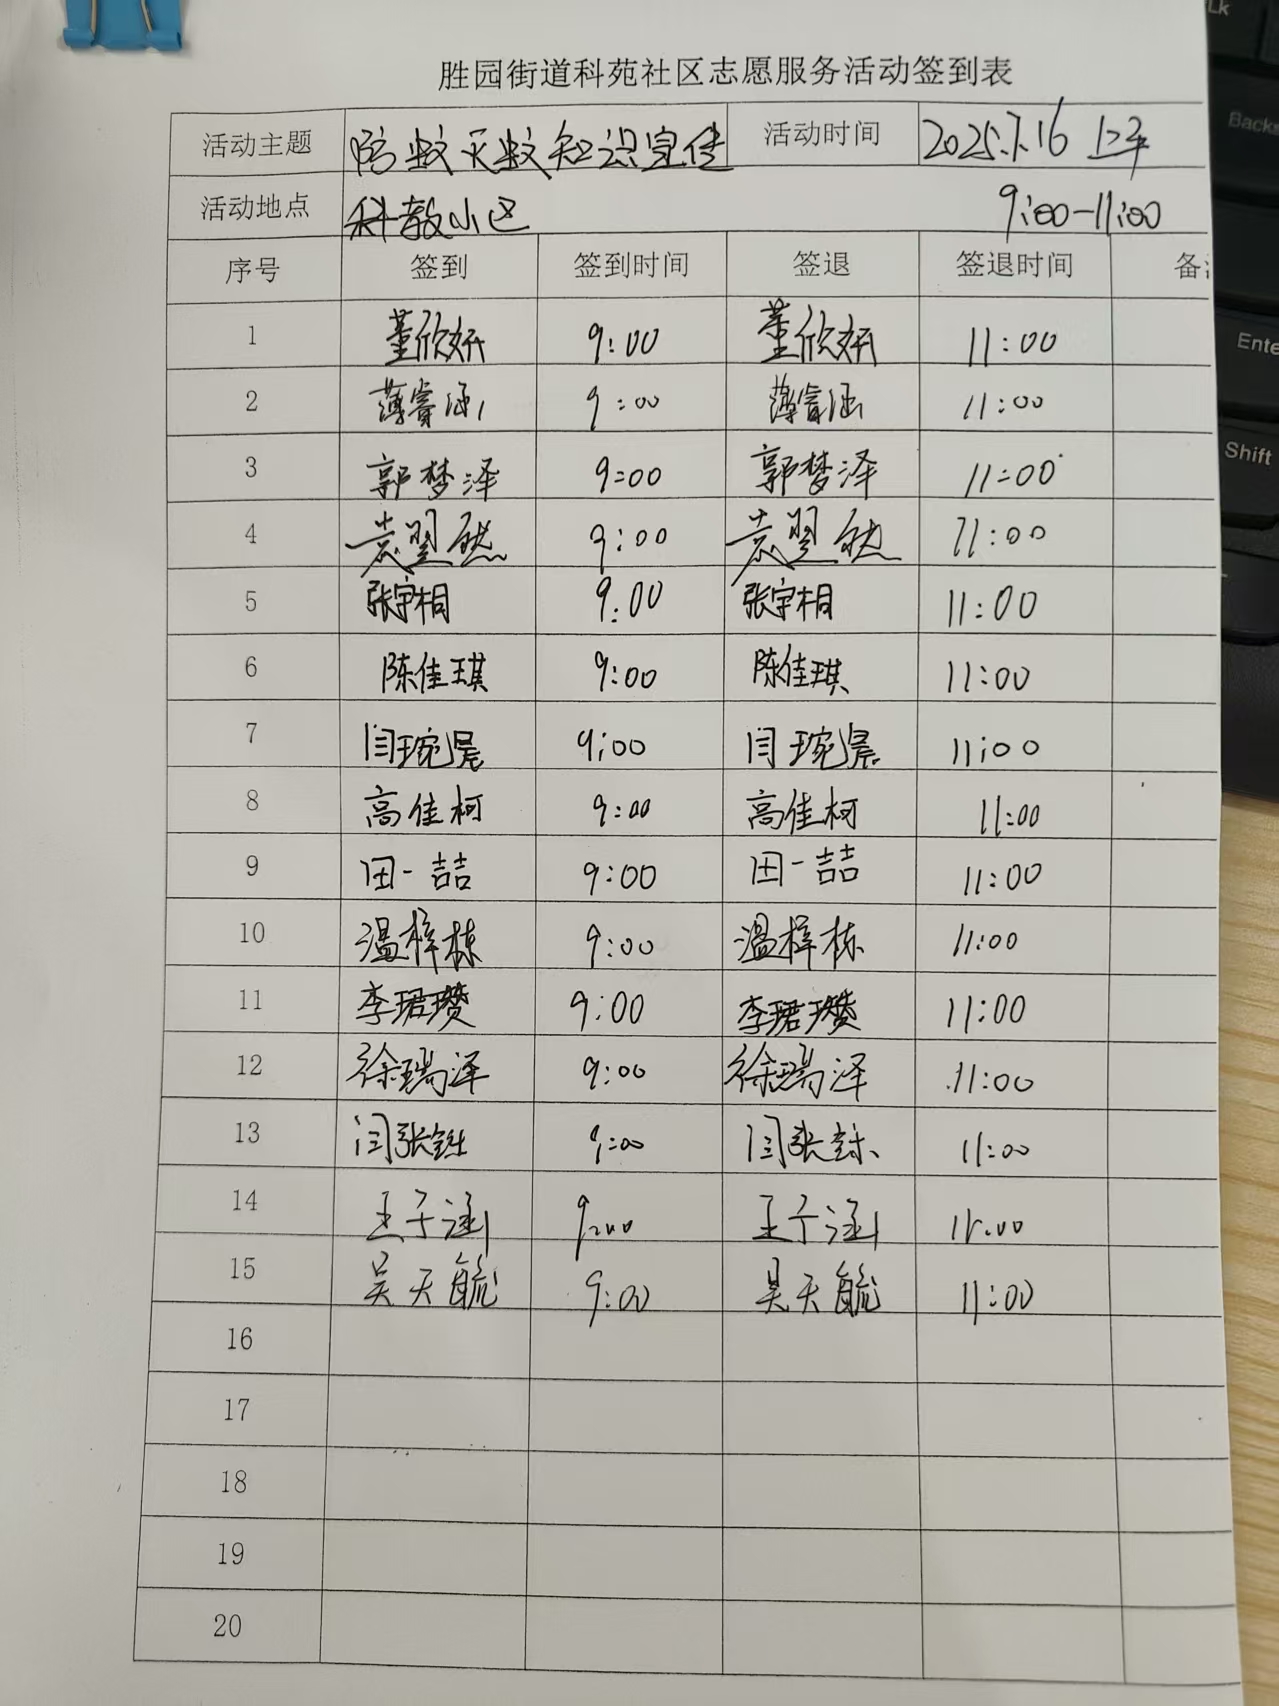 胜园街道科苑社区志愿服务活动签到表
活动主题 防蚊灭蚊知识宣传 活动时间 2025.7.16 上午
活动地点 科教小区 9:00-11:00
序号 签到 签到时间 签退 签退时间 备
1 董欣妍 9:00 董欣妍 11:00
2 薄睿涵 9:00 薄睿涵 11:00
3 郭梦泽 9:00 郭梦泽 11:00
4 袁翌然 9:00 袁翌然 11:00
5 张宇相 9:00 张宇相 11:00
6 陈佳琪 9:00 陈佳琪 11:00
7 闫琬晨 9:00 闫琬晨 11:00
8 高佳柯 9:00 高佳柯 11:00
9 田一喆 9:00 田一喆 11:00
10 温梓栋 9:00 温梓栋 11:00
11 李珺瓒 9:00 李珺瓒 11:00
12 徐瑞泽 9:00 徐瑞泽 11:00
13 闫张 9:00 闫张 11:00
14 王子涵 9:00 王子涵 11:00
15 吴天毓 9:00 吴天毓 11:00
16
17
18
19
20
Lk
Backs
Ente
Shift